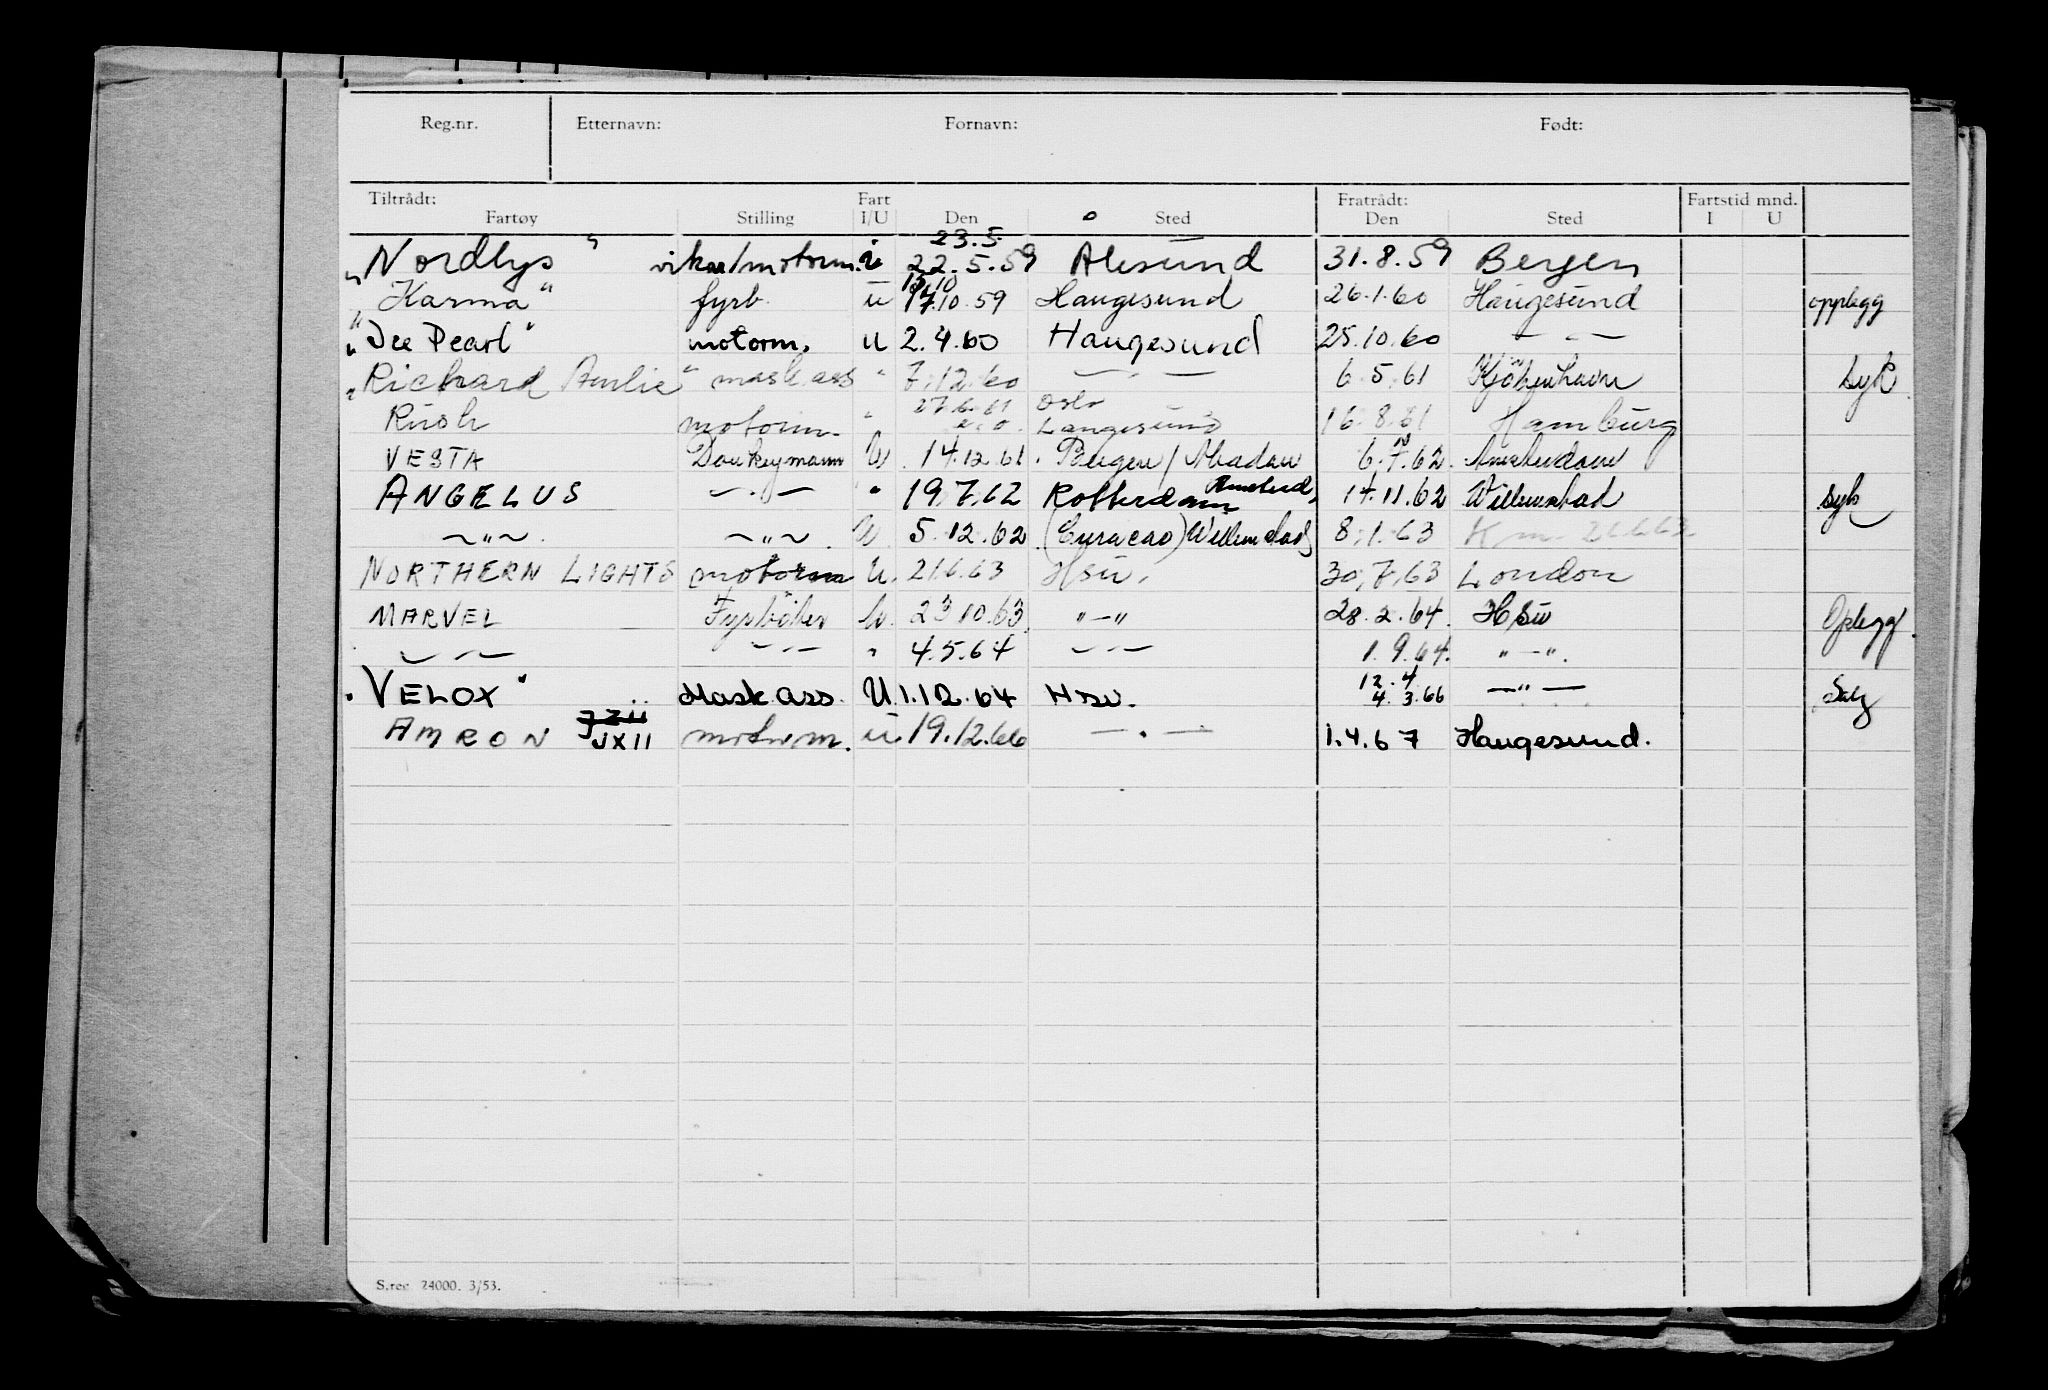 Reg.nr. Etternavn: Fornavn: Født:
Tiltrådt: Fart Fratrådt: Fartstid mnd.
Fartøy Stilling I/U Den Sted Den Sted I U
23.5.
"Nordlys" vikar/motorm. i 22.5.59 Ålesund 31.8.59 Bergen
"Karma" fyrb. u 10.59 Haugesund 26.1.60 Haugesund opplegg
"Dee Pearl" motorm. u 2.4.60 Haugesund 25.10.60 — " —
"Richard Amlie" mask.ass " 7.12.60 — " — 6.5.61 Kjöbenhavn syk
27.6.61 Oslo
Rush motorm. " Langesund 16.8.61 Hamburg
VESTA Donkeymann U. 14.12.61. Bergen / Abadan 6.7.62. Amsterdam
ANGELUS — . — " 19.7.62 Rotterdam Amsterd. 14.11.62 Willemstad syk
— " — — " — U. 5.12.62. (Curacao) Willemstad 8.1.63
NORTHERN LIGHTS motorm U. 21.6.63 Hsu. 30.7.63 London
MARVEL Fyrböter U. 23.10.63. " — " 28.2.64. Hsu Oplegg.
— " — — " — " 4.5.64 — " — 1.9.64. " — ".
12.4
"VELOX" Mask ass. U 1.12.64 Hsu. 4.3.66 — " — Salg
AMRON JXII motorm. u 19.12.66 — . — 1.4.67 Haugesund.
S.reg 74000. 3/53.